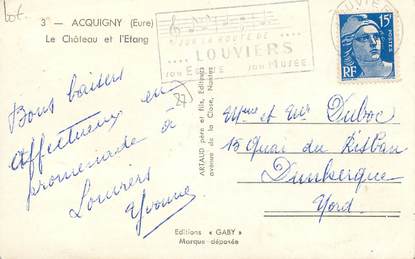 bot.
3 — ACQUIGNY (Eure)
Le Château et l'Etang
SUR LA ROUTE DE
LOUVIERS
SON EGLISE SON MUSEE
LOUVIERS
15F
POSTES
RF
Bons baisers
affectueux en
promenade à
Louviers
Yvonne
(27)
ARTAUD père et fils, Editeurs
avenue de la Close, Nantes
Mme et Mr Duboc
15 Quai du Risban
Dunkerque
Nord.
Editions « GABY »
Marque déposée